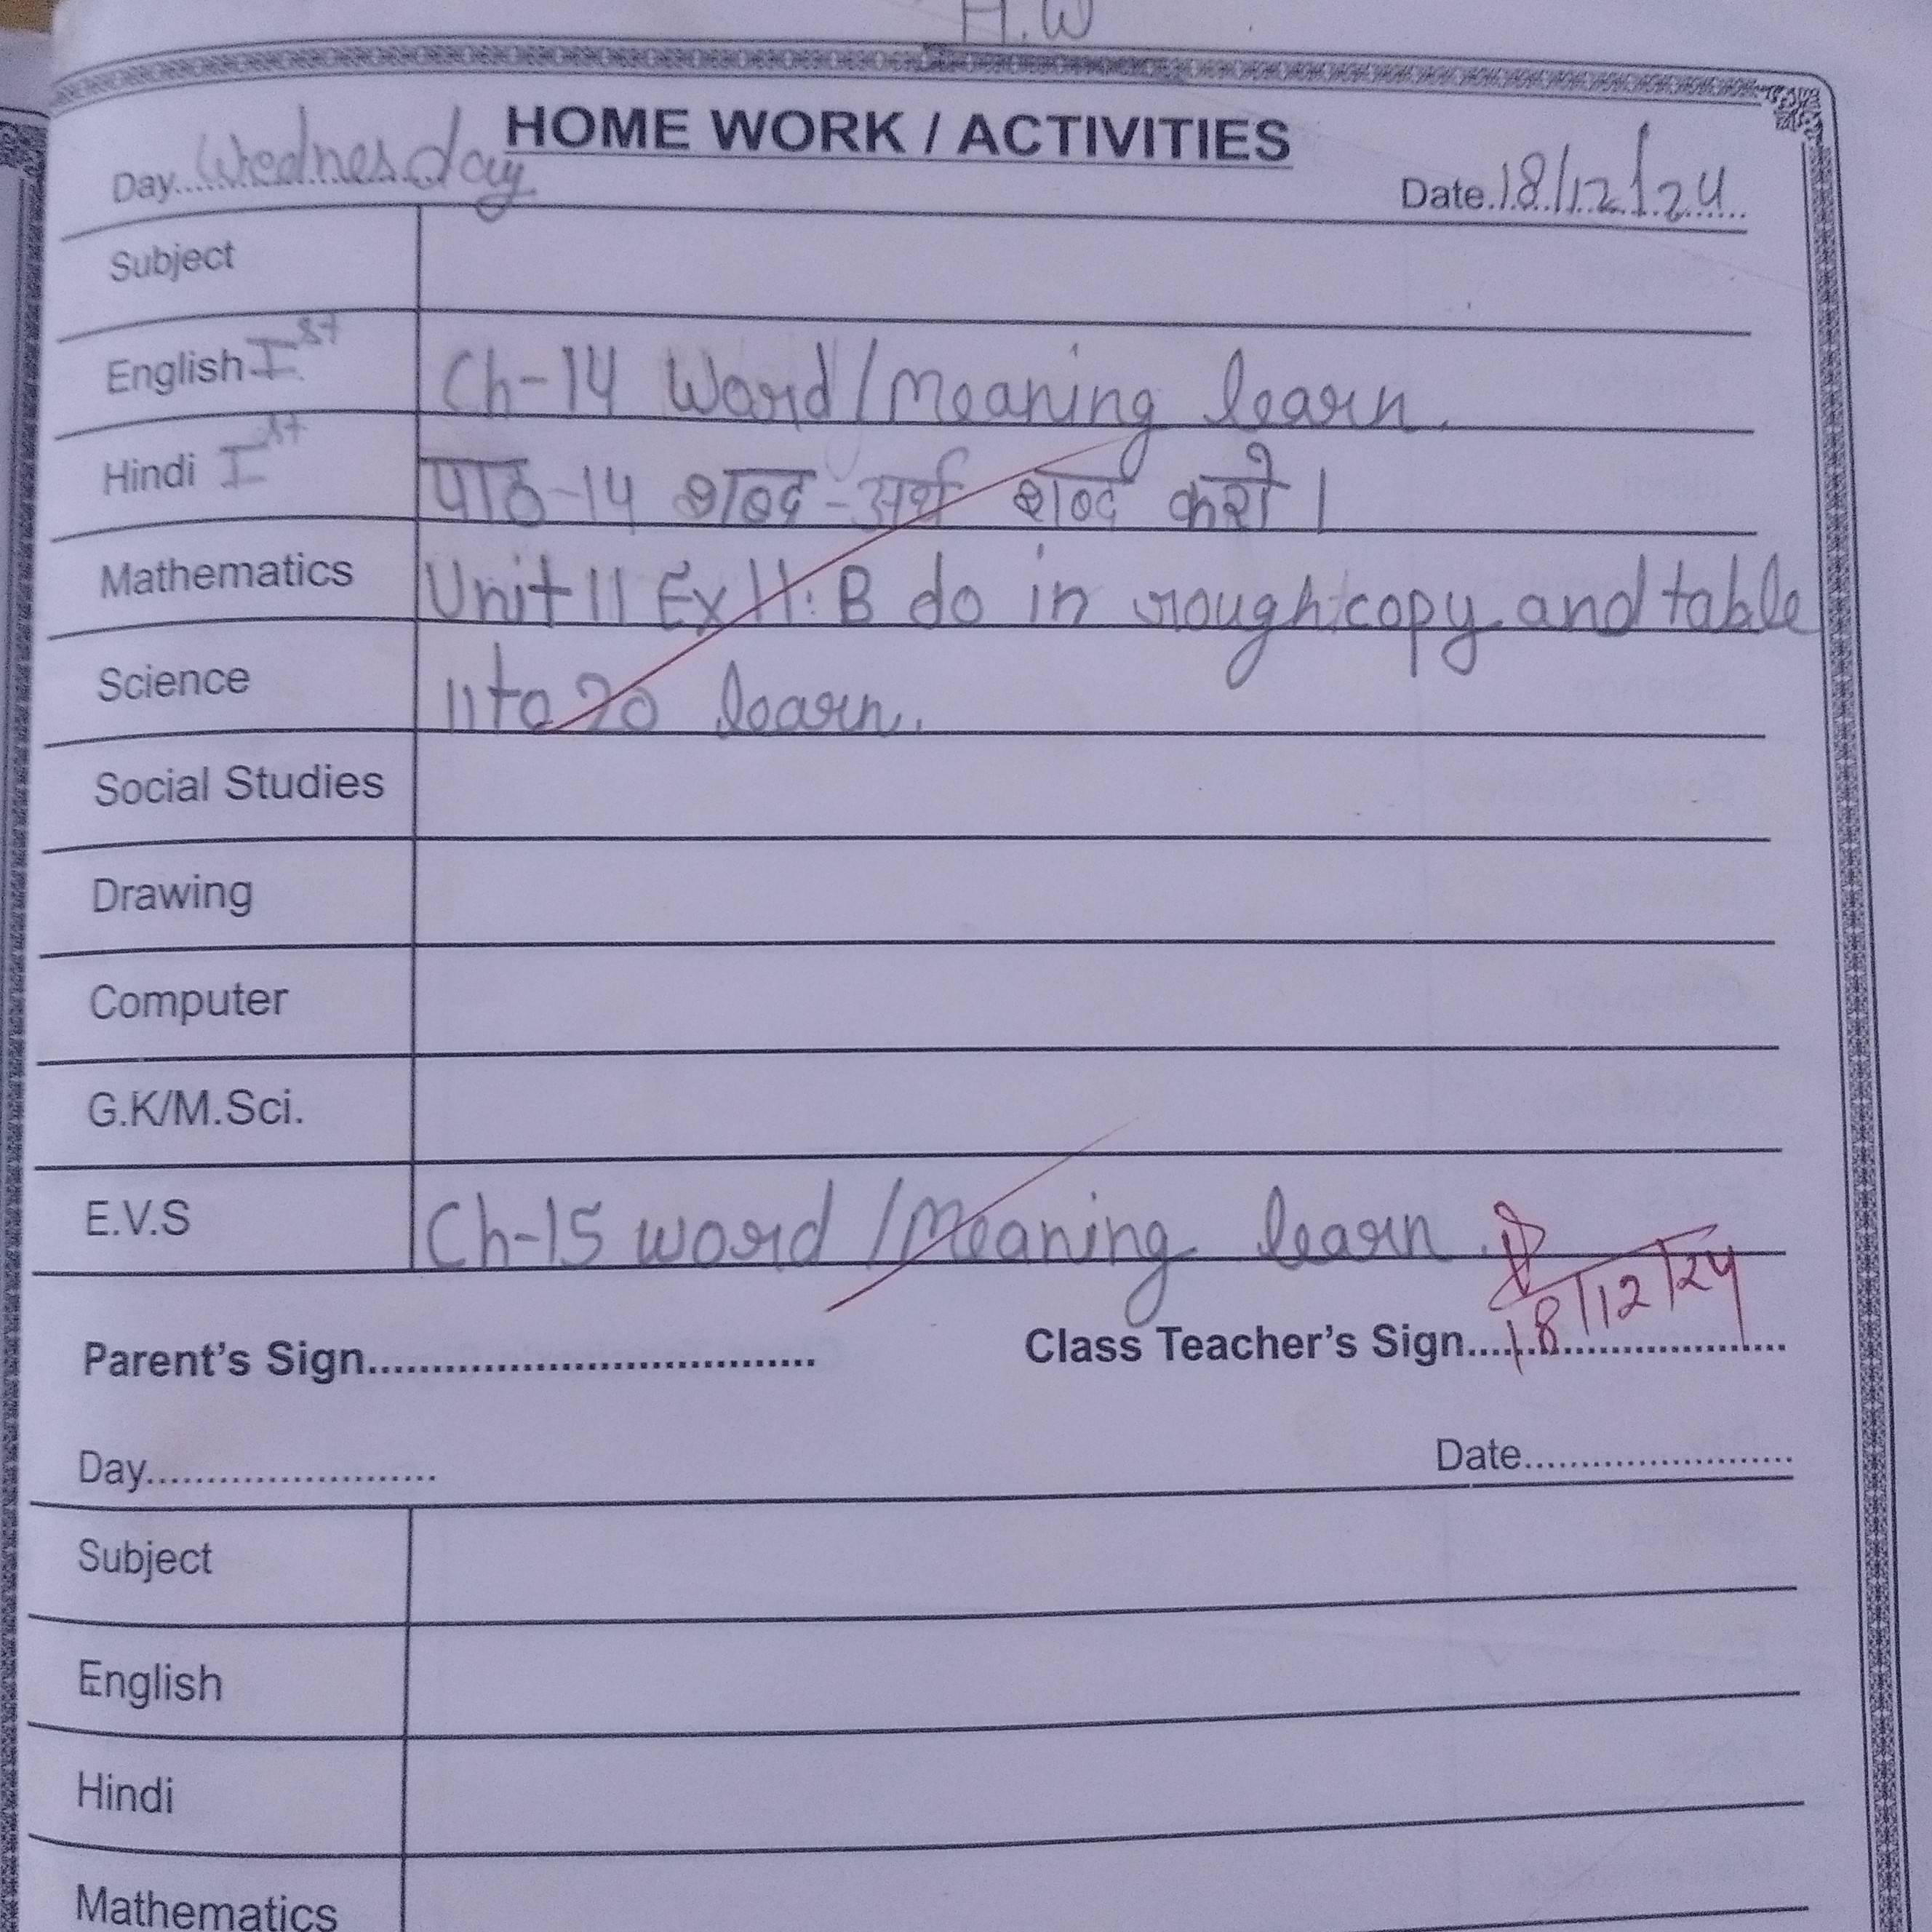 H.W
HOME WORK / ACTIVITIES
Day Wednesday Date 18/12/24
Subject
English Ist Ch-14 Word/Meaning learn.
Hindi Ist पाठ-14 शब्द-अर्थ शब्द करो।
Mathematics Unit 11 Ex 11:B do in rough copy and table
Science 11 to 20 learn.
Social Studies
Drawing
Computer
G.K/M.Sci.
E.V.S Ch-15 word/Meaning learn.
18/12/24
Parent's Sign Class Teacher's Sign
Day Date
Subject
English
Hindi
Mathematics